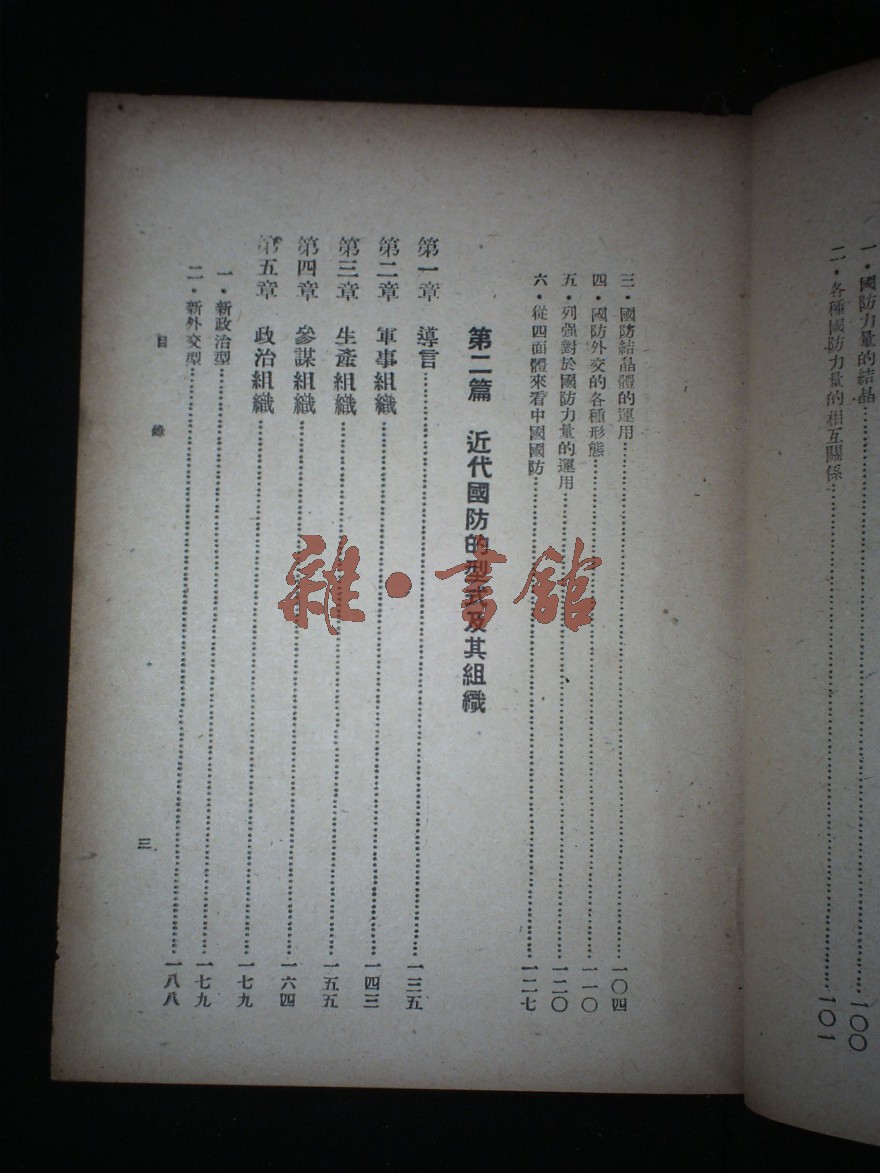 一・國防力量的結晶……100
二・各種國防力量的相互關係……101
三・國防結晶體的運用……一〇四
四・國防外交的各種形態……一一〇
五・列强對於國防力量的運用……一二〇
六・從四面體來看中國國防……一二七
第二篇 近代國防的型式及其組織
第一章 導言……一三五
第二章 軍事組織……一四三
第三章 生產組織……一五五
第四章 參謀組織……一六四
第五章 政治組織……一七九
一・新政治型……一七九
二・新外交型……一八八
目 錄
三
雜・書館